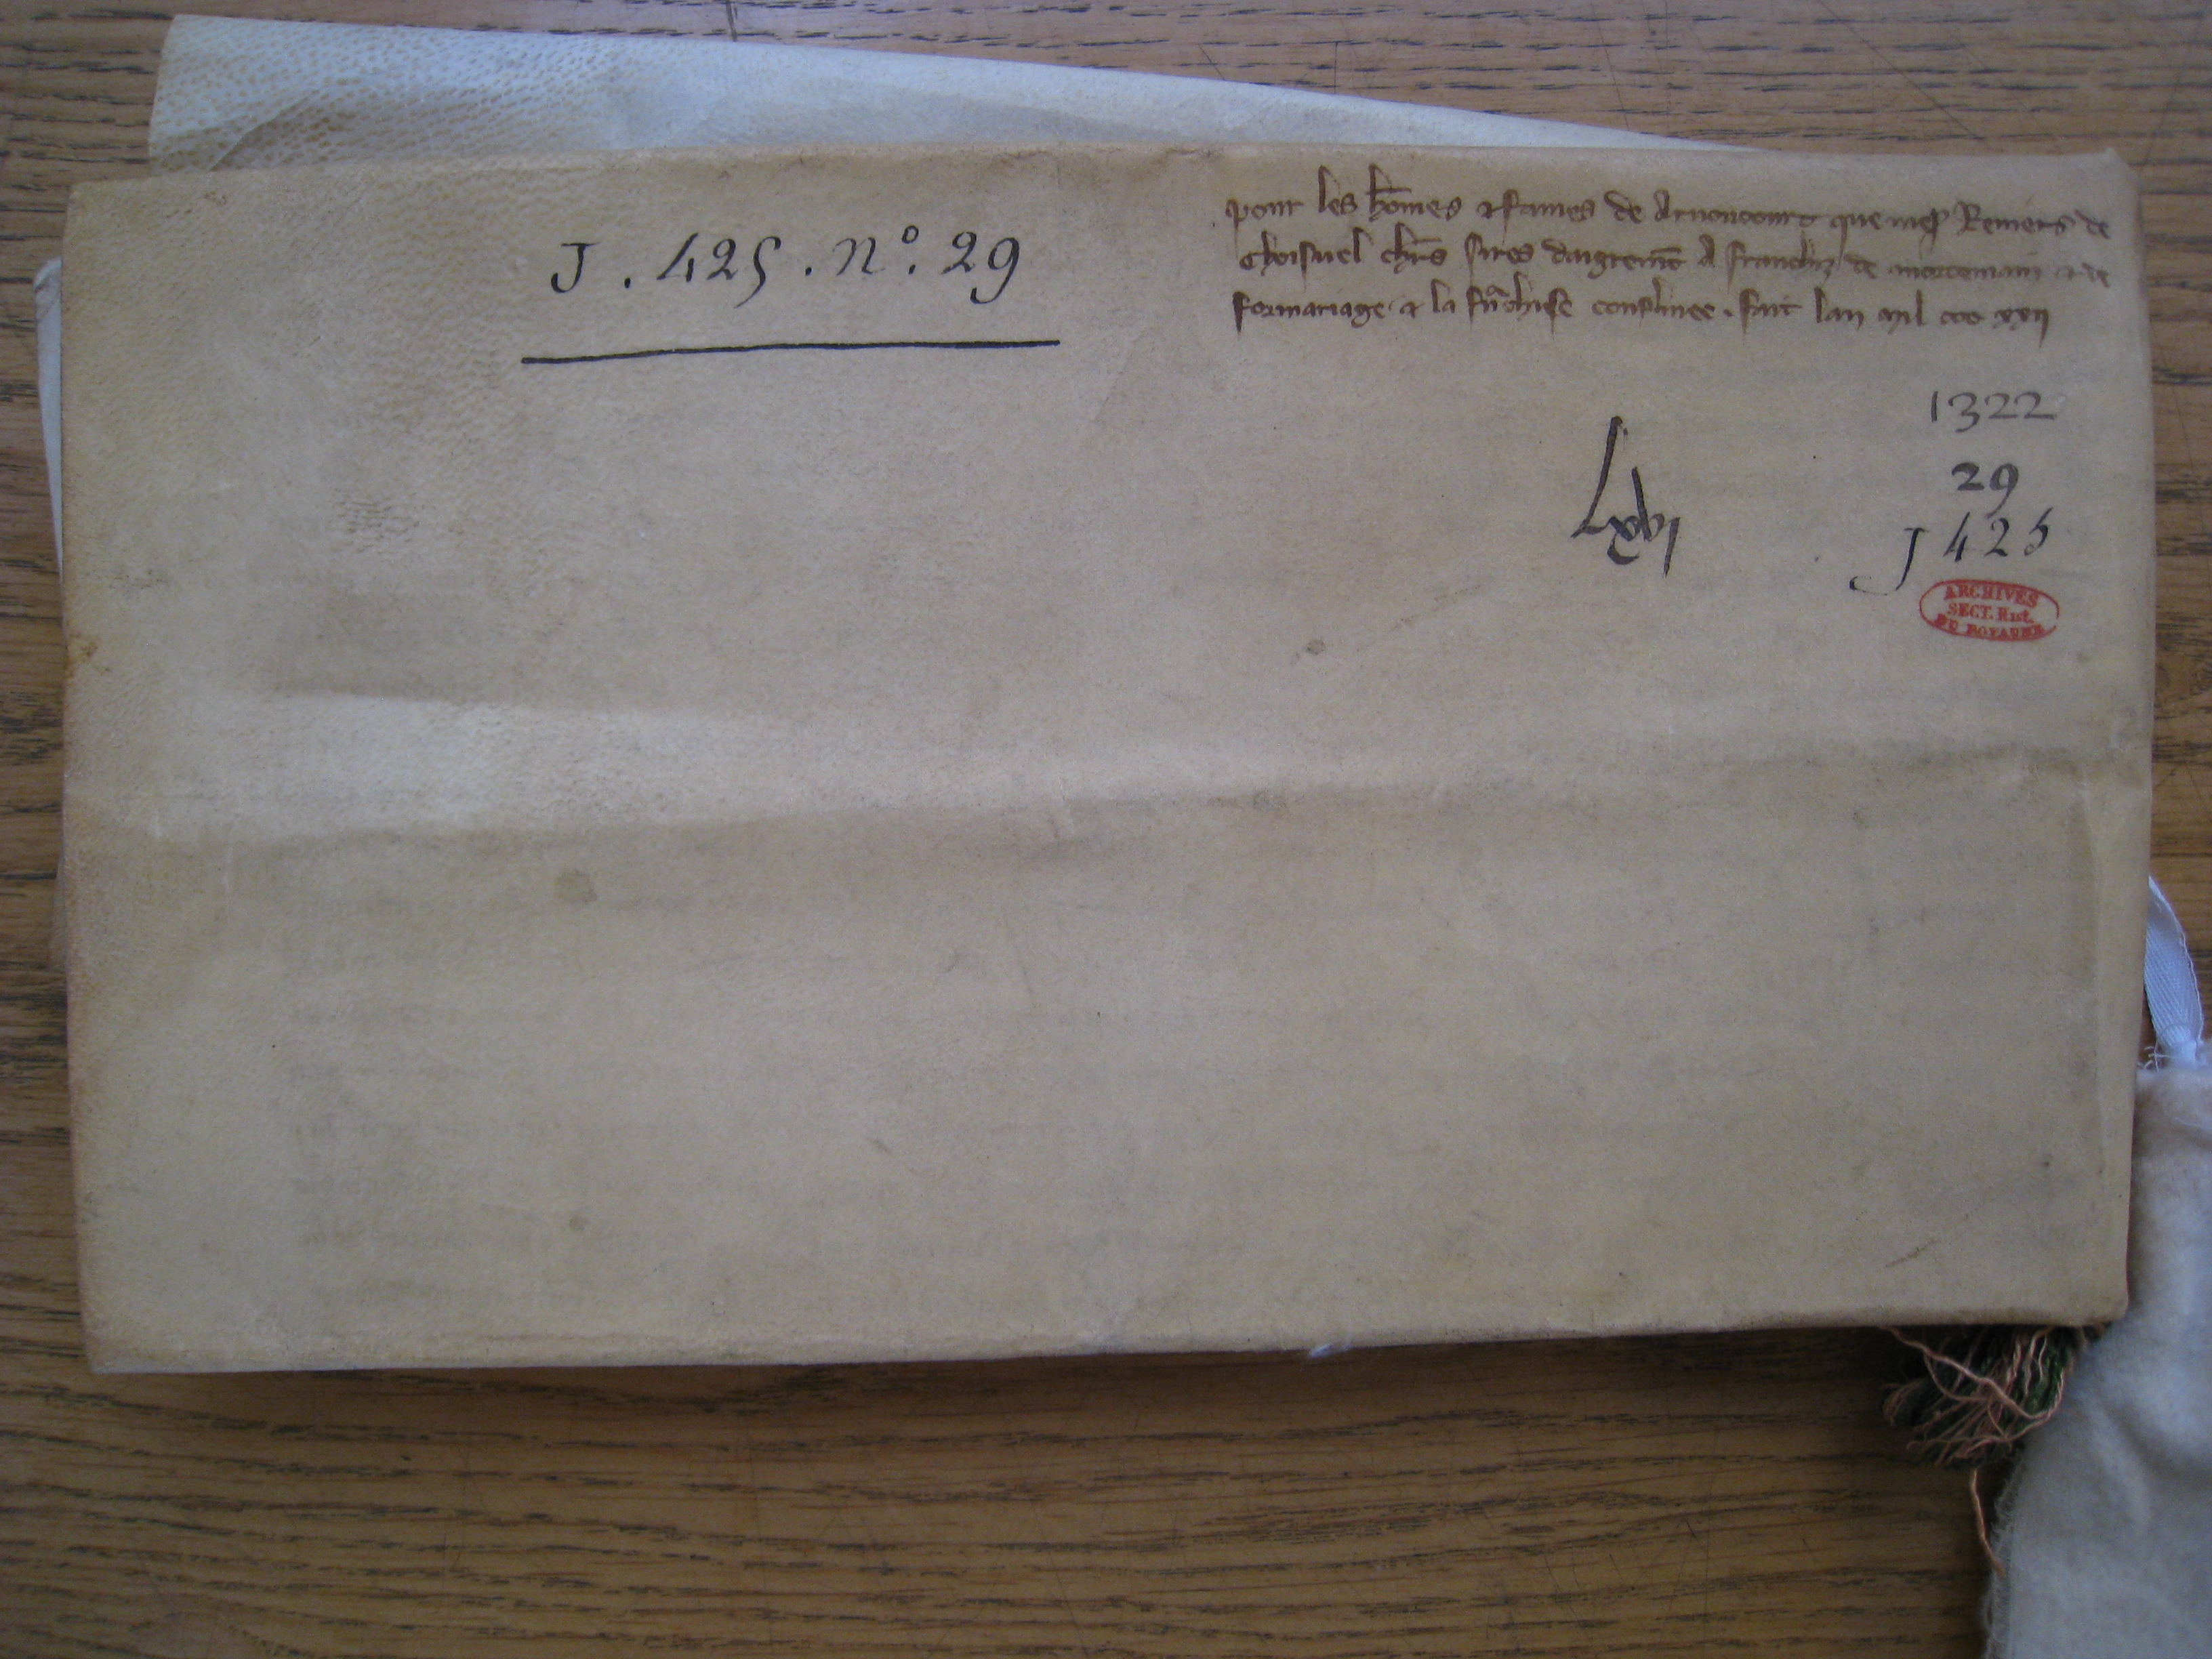 J. 425. n°. 29
pour les hōmes & fames de Arnoncourt que mesʳ Reniers de
Choisuel chrs sires daigremōt A franchiz de mortemain & de
formariage & la frāchise confirmee. fait lan mil ccc xxij
1322
Lxvj
29
J 425
ARCHIVES
SECT. Hist.
DU ROYAUME